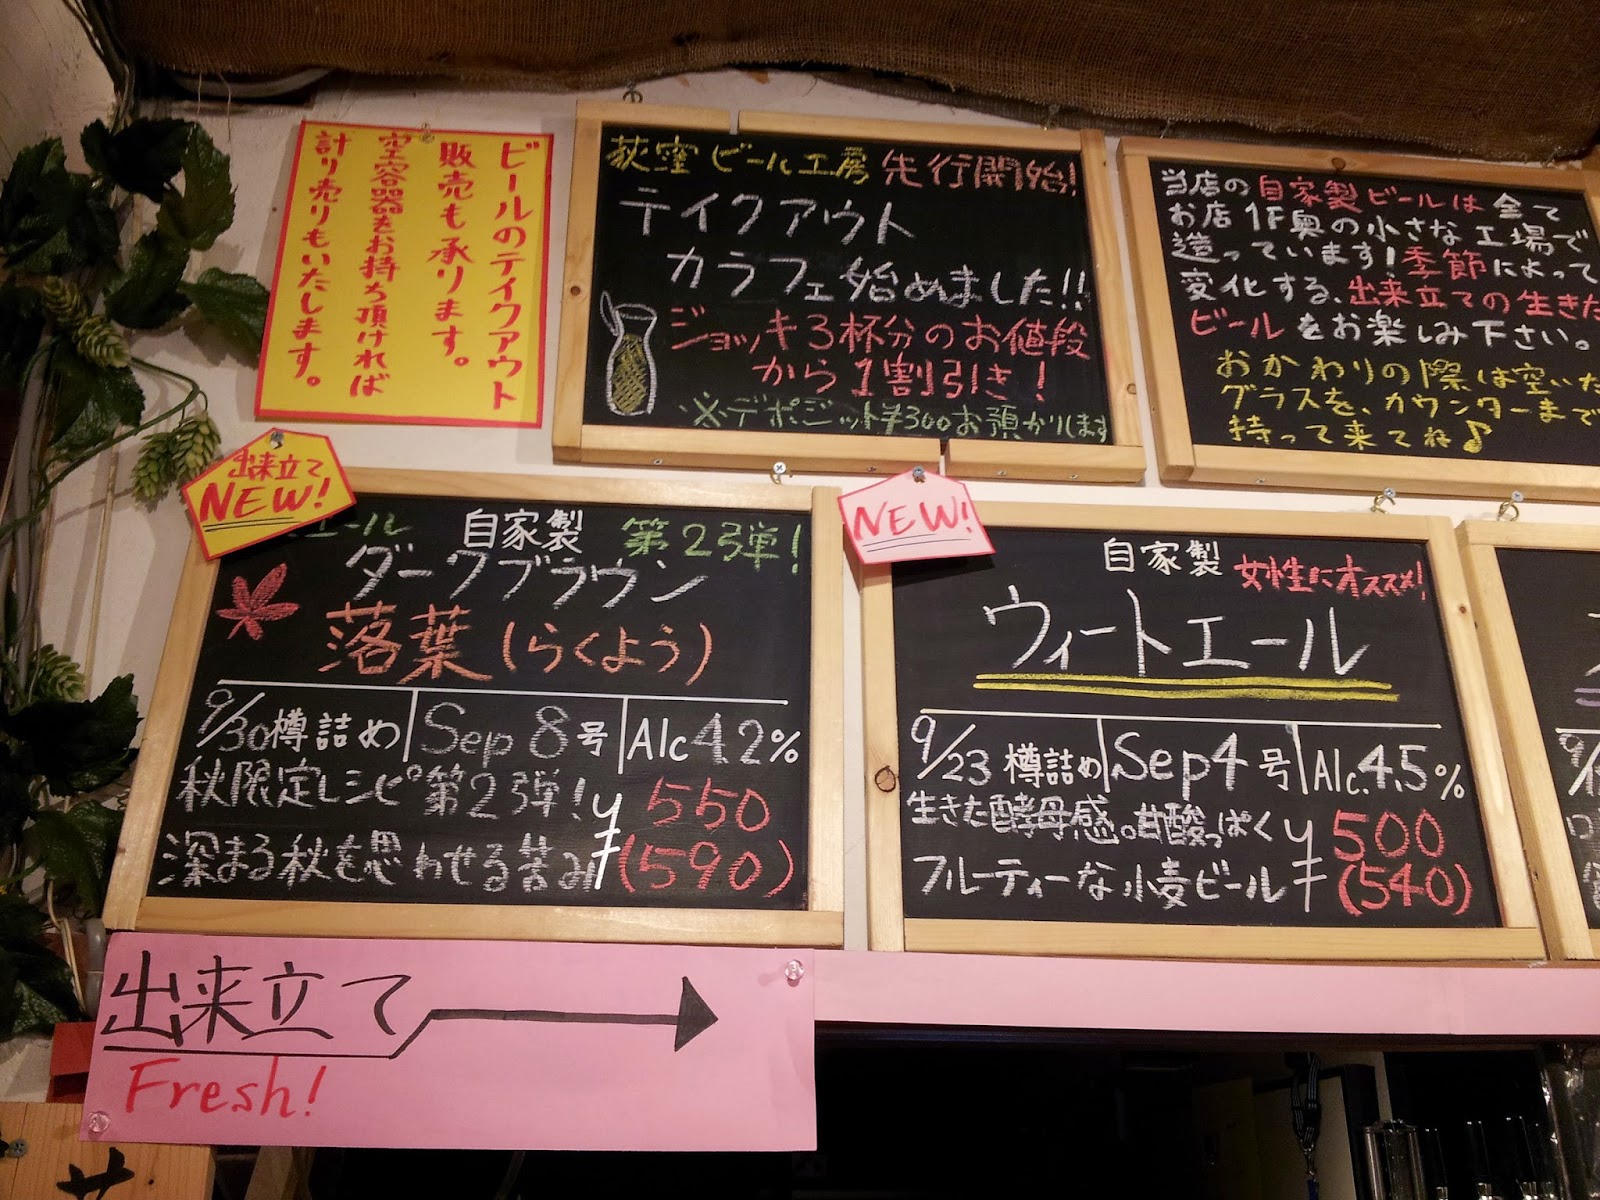 ビールのテイクアウト
販売も承ります。
空容器をお持ち頂ければ
計り売りもいたします。
荻窪ビール工房 先行開始!
テイクアウト
カラフェ始めました!!
ジョッキ3杯分のお値段
から1割引き!
※デポジット¥300お預かりします
当店の自家製ビールは全て
お店1F奥の小さな工場で
造っています!季節によって
変化する、出来立ての生きた
ビールをお楽しみ下さい。
おかわりの際は空いた
グラスを、カウンターまで
持って来てね♪
出来立て
NEW!
エール 自家製 第2弾!
ダークブラウン
落葉(らくよう)
9/30樽詰め Sep 8号 Alc 4.2%
秋限定レシピ第2弾! ¥550
深まる秋を思わせる苦み (590)
NEW!
自家製 女性にオススメ!
ウィートエール
9/23 樽詰め Sep 4号 Alc.4.5%
生きた酵母感。甘酸っぱく ¥500
フルーティーな小麦ビール (540)
出来立て
Fresh!
サ